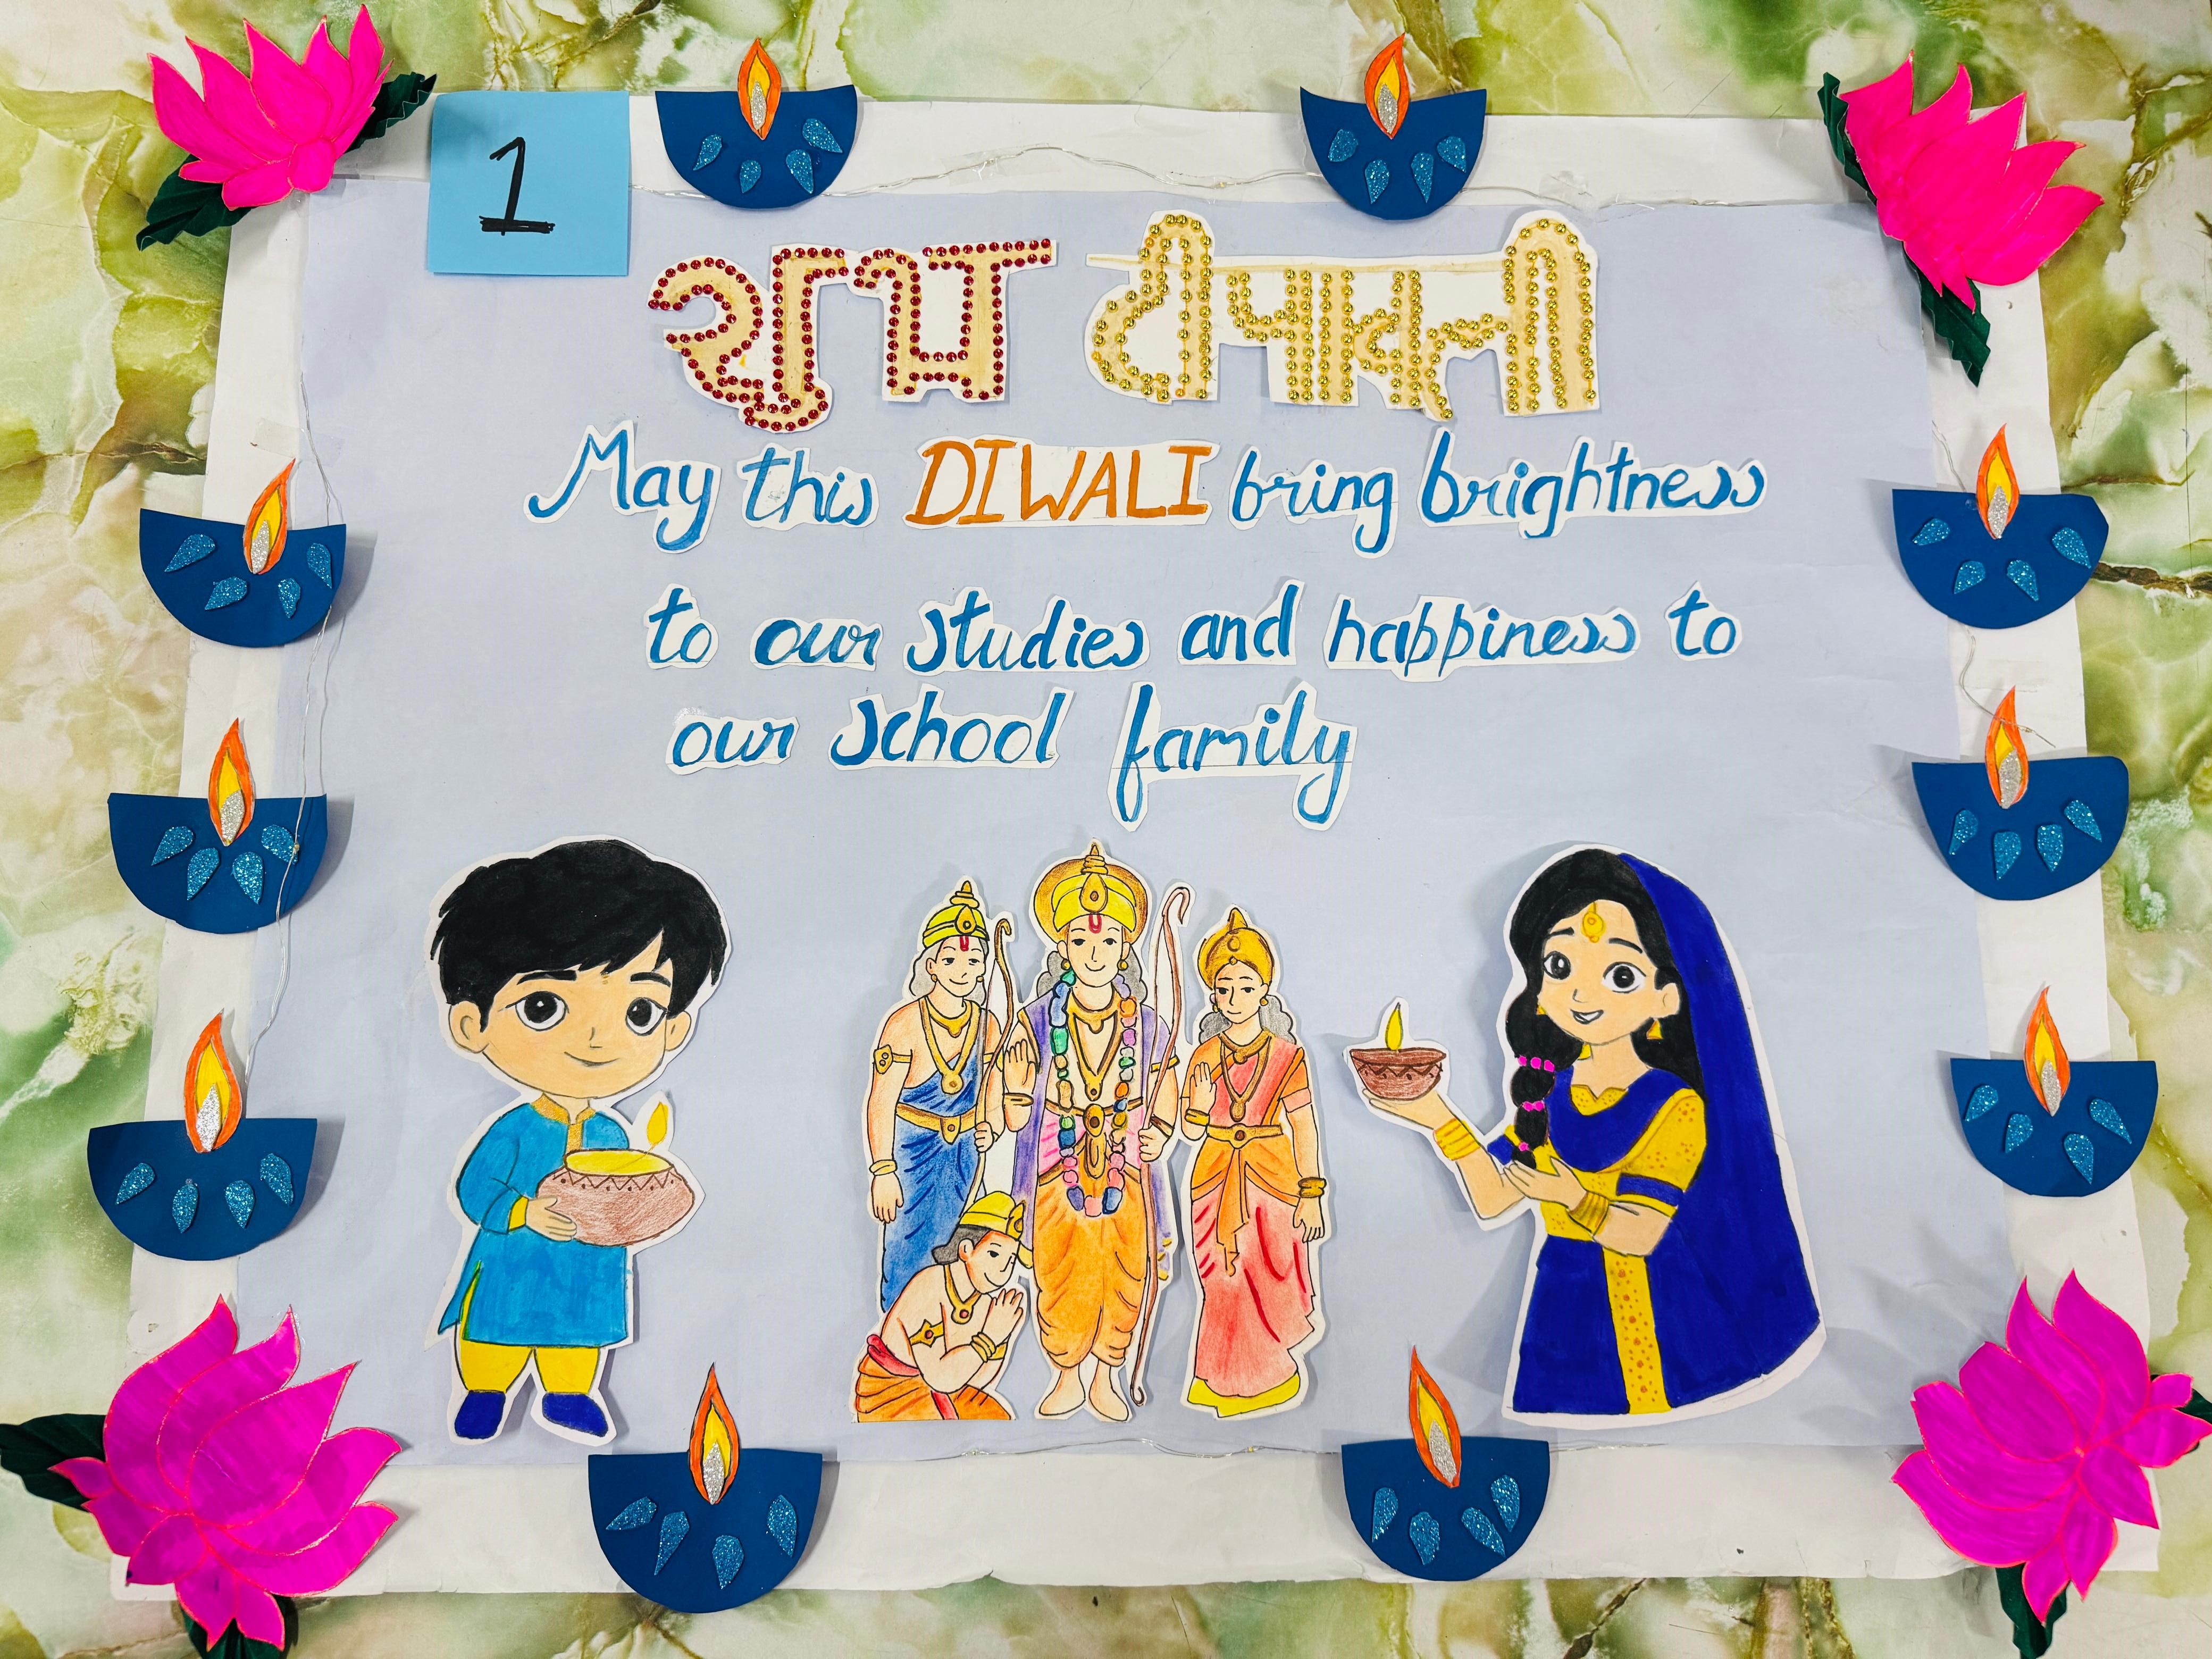 1
शुभ दीपावली
May this DIWALI bring brightness
to our studies and happiness to
our school family